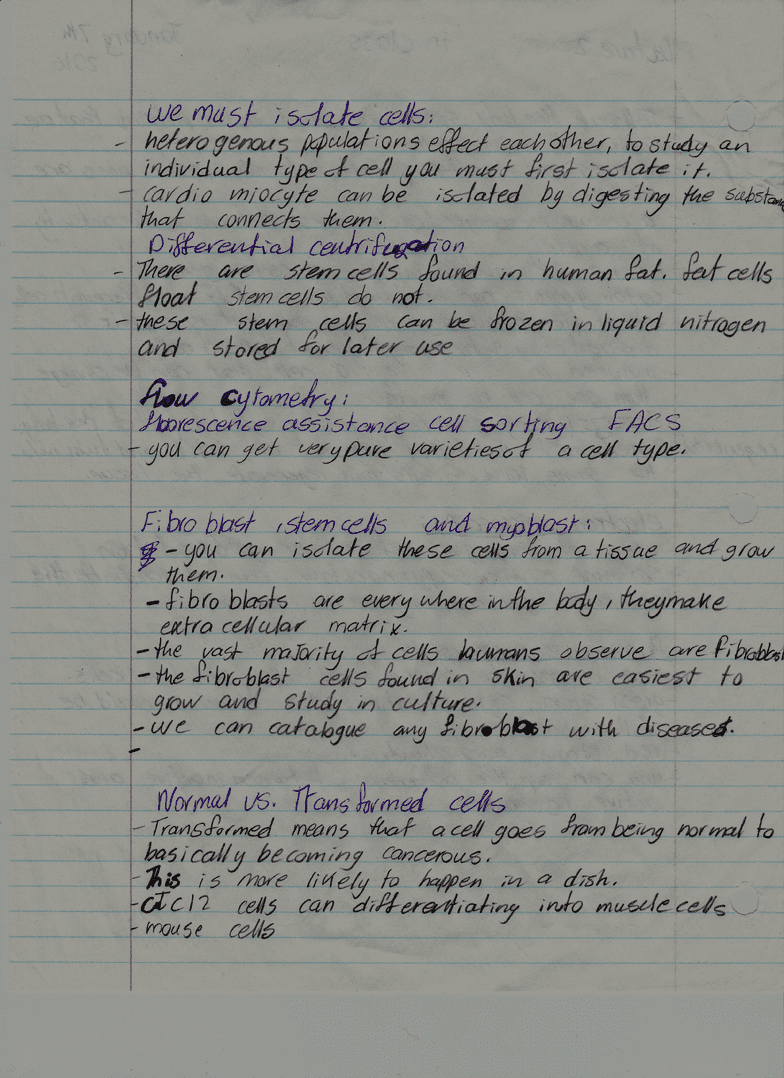 we must isolate cells:
- heterogenous populations effect eachother, to study an
individual type of cell you must first isolate it.
- cardio miocyte can be isolated by digesting the substan
that connects them.
Differential centrifugation
- There are stem cells found in human fat. fat cells
float stem cells do not.
- these stem cells can be frozen in liquid nitrogen
and stored for later use
flow cytometry:
fluorescence assistance cell sorting FACS
- you can get very pure varieties of a cell type.
Fibro blast, stem cells and myoblast:
- you can isolate these cells from a tissue and grow
them.
- fibro blasts are every where in the body, they make
extra cellular matrix.
- the vast majority of cells humans observe are fibroblast
- the fibroblast cells found in skin are easiest to
grow and study in culture.
- we can catalogue any fibroblast with diseased.
-
Normal vs. Transformed cells
- Transformed means that a cell goes from being normal to
basically becoming cancerous.
- This is more likely to happen in a dish.
- C2C12 cells can differentiating into muscle cells
- mouse cells